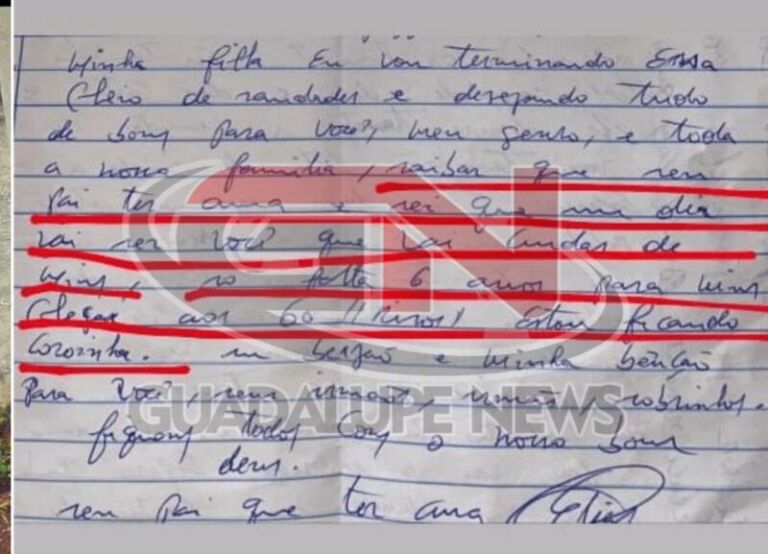 Minha filha Eu vou terminando Essa
Cheio de saudades e desejando tudo
de bom para você, meu genro, e toda
a nossa familia, saiba que seu
pai ter ama e sei que um dia
vai ser você que vai Cuidar de
mim, so falta 6 anos para mim
Chegar aos 60 //risos// Estou ficando
Coroinha. um beijão e minha bênção
para você, seus irmãos, irmãs, sobrinhos.
fiquem todos Com o nosso bom
deus.
seu pai que ter ama
GN
GUADALUPE NEWS